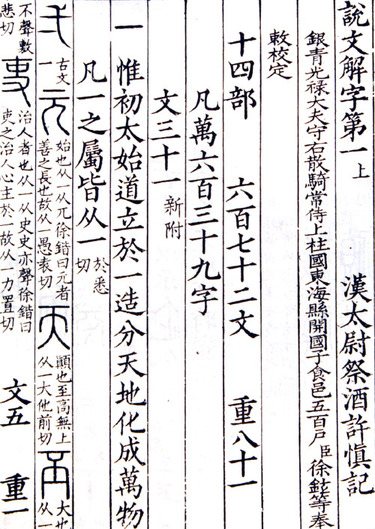 說文解字第一 上 漢太尉祭酒許慎記
銀青光禄大夫守右散騎常侍上柱國東海縣開國子食邑五百戶臣徐鉉等奉
敕校定
十四部 六百七十二文 重八十一
凡萬六百三十九字
文三十一 新附
一 惟初太始道立於一造分天地化成萬物
凡一之屬皆从一 於悉切
弌 古文一 元 始也从一从兀徐鍇曰元者善之長也故从一愚袁切 天 顚也至高無上从一大他前切 丕 大也从一
不聲敷悲切 吏 治人者也从一从史史亦聲徐鍇曰吏之治人心主於一故从一力置切 文五 重一